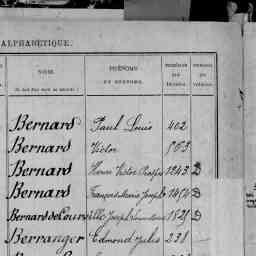 ALPHABÉTIQUE.
NOMS.
PRÉNOMS
ET SURNOMS.
NUMÉROS
Bernard Paul Louis 402
Bernard Victor 863
Bernard Henri Victor 1243 D
Bernard François Marie Joseph 1494 D
Bernard de Courville Joseph 1529 D
Berranger Edmond Jules 231 —